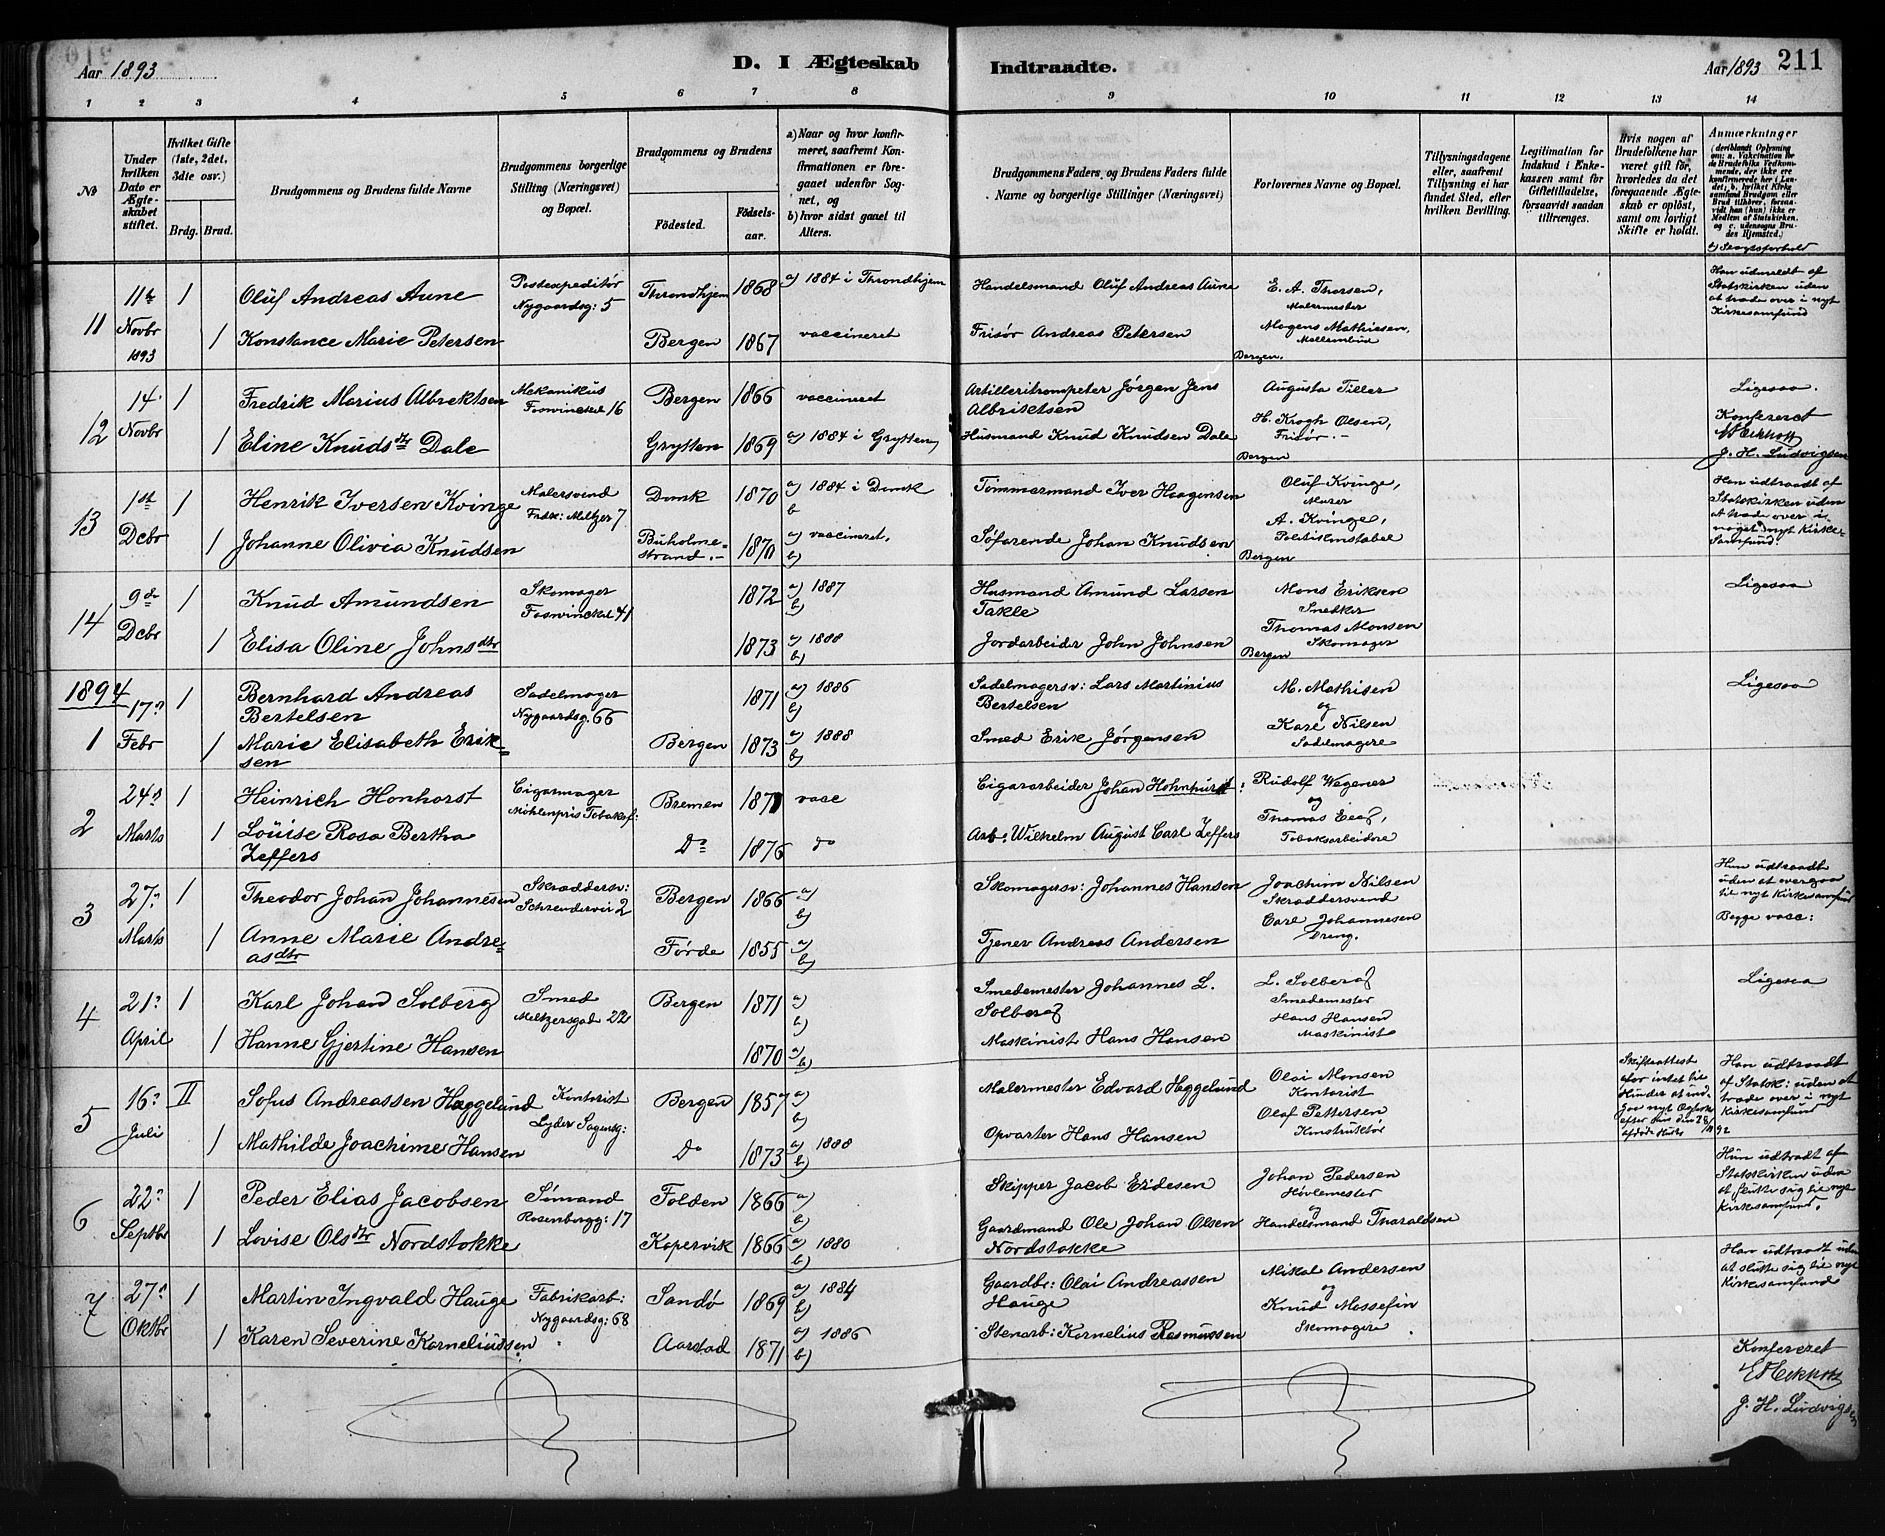 Aar 1893
D. I Ægteskab
Indtraadte.
Aar 1893
211
1 2 3 4 5 6 7 8 9 10 11 12 13 14
No
Under hvilken Dato er Ægteskabet stiftet.
Hvilket Gifte (1ste, 2det, 3die osv.)
Brdg. Brud.
Brudgommens og Brudens fulde Navne
Brudgommens borgerlige Stilling (Næringsvei) og Bopæl.
Brudgommens og Brudens
Fødested.
Fødselsaar.
a) Naar og hvor konfirmeret, saafremt Konfirmationen er foregaaet udenfor Sognet, og
b) hvor sidst gaaet til Alters.
Brudgommens Faders og Brudens Faders fulde Navne og borgerlige Stillinger (Næringsvei)
Forlovernes Navne og Bopæl.
Tillysningsdagene eller, saafremt Tillysning ei har fundet Sted, efter hvilken Bevilling.
Legitimation for Indskud i Enkekassen samt for Giftetilladelse, forsaavidt saadan tiltrænges.
Hvis nogen af Brudefolkene har været gift før, hvorledes da det foregaaende Ægteskab er opløst, samt om lovligt Skifte er holdt.
Anmærkninger
(deriblandt Oplysning om: a. Vaksination for de Brudefolks Vedkommende, der ikke ere konfirmerede her i Landet; b. hvilket Kirkesamfund Brudgom eller Brud tilhører, forsaavidt han (hun) ikke er Medlem af Statskirken, og c. udensogns Brudes Hjemsted.)
11 11te Novbr 1893 1 Oluf Andreas Aune Postexpeditør Nygaardsg: 5 Throndhjem 1868 a) 1884 i Throndhjem Handelsmand Oluf Andreas Aune E. A. Thorsen, Malermester Han udmeldt af Statskirken uden at træde over i nyt Kirkesamfund
1 Konstance Marie Petersen Bergen 1867 vaccineret Frisør Andreas Petersen Mogens Mathiesen, Bergen.
12 14. Novbr 1 Fredrik Marius Albrektsen Mekanikus Foswinckel 16 Bergen 1866 vaccineret Artilleritrompeter Jørgen Jens Albriktsen Augusta Tiller Ligesaa.
1 Eline Knudsdtr Dale Grytten 1869 a) 1884 i Grytten Husmand Knud Knudsen Dale H. Krogh Olsen, Frisør.- Bergen Konfereret J. H. Ludvigsen
13 1ste Dcbr 1 Henrik Iversen Kvinge Malersvend Fredr: Meltzer 7 Domk 1870 a) 1884 i Domk b Tømmermand Iver Haagensen Oluf Kvinge, Murer Han udtraadt af Statskirken uden at træde over i noget nyt Kirkesamfund.
1 Johanne Olivia Knudsen Buholmestrand.- 1870 a) vaccineret. b) Søfarende Johan Knudsen A. Kvinge, Politikonstabel Bergen
14 9de Dcbr 1 Knud Amundsen Skomager Foswinckel 41 1872 a) 1887 b) Husmand Amund Larsen Takle Mons Eriksen Snedker Ligesaa
1 Elisa Oline Johnsdtr 1873 a) 1888 b) Jordarbeider John Johnsen Thomas Monsen Skomager Bergen
1894
1 17. Febr 1 Bernhard Andreas Bertelsen Sadelmager Nygaardsg. 66 1871 a) 1886 b) Sadelmagersv: Lars Martinius Bertelsen M. Mathisen og Ligesaa
1 Marie Elisabeth Eriksen Bergen 1873 a) 1888 b) Smed Erik Jørgensen Karl Nilsen Sadelmagere
2 24. Marts 1 Heinrich Honhorst Cigarmager Møhlenpris Tobakof: Bremen 1871 vacc Cigararbeider Johan Hohnhurst Rudolf Wegener og
1 Louise Rosa Bertha Zeffers Do 1876 do Arb: Wilhelm August Carl Zeffers Thomas Tobaksarbeidere
3 27. Marts 1 Theodor Johan Johannesen Skræddersv: 2 Bergen 1866 a) b) Skomagersv: Johannes Hansen Joachim Nilsen Skræddersvend Hun udtraadt uden at overgaa til nyt Kirkesamfund Begge vacc:
1 Anne Marie Andreasdtr Førde 1855 a) b) Tjener Andreas Andersen Carl Johannesen
4 21. April 1 Karl Johan Solberg Smed Meltzersgad 22 Bergen 1871 a) b) Smedemester Johannes L. Solberg L. Solberg Smedemester Ligesaa
1 Hanne Gjertine Hansen 1870 a) b) Maskinist Hans Hansen Hans Hansen Maskinist
5 16. Juli II Sofus Andreassen Hæggelund Kontorist Lyder Sagensg: Bergen 1857 a) b) Malermester Edvard Heggelund Olai Monsen Kontorist Skifteattest for intet til Hinder at indgaa nyt efter afdøde Hustru Han udtraadt af Statsk: uden at træde over i nyt Kirkesamfund
1 Mathilde Joachime Hansen Do 1873 a) 1888 b) Opvarter Hans Hansen Olaf Pettersen Konstruktør
6 22. Septbr 1 Peder Elias Jacobsen Sømand Rosenbergg: 17 Folden 1866 a) b) Skipper Jacob Eidesen Johan Pedersen Høvlemester og Hun udtradt af Statskirken uden at slutte sig til nyt Kirkesamfund.
1 Lovise Olsdtr Nordstokke Kopervik 1866 a) 1880 b) Gaardmand Ole Johan Olsen Nordstokke Handelsmand Tharaldsen
7 27. Oktbr 1 Martin Ingvald Hauge Fabrikarb: Nygaardsg: 68 Sandø 1869 a) 1884 b) Gaardbr: Olai Andreassen Hauge Mikal Andersen og Han udtraadt uden at slutte sig til nyt Kirkesamfund
1 Karen Severine Korneliussen Aarstad 1871 a) 1886 b) Stenarb: Kornelius Rasmussen Knud Messefin Skomagere
Konfereret
J. H. Ludvigsen